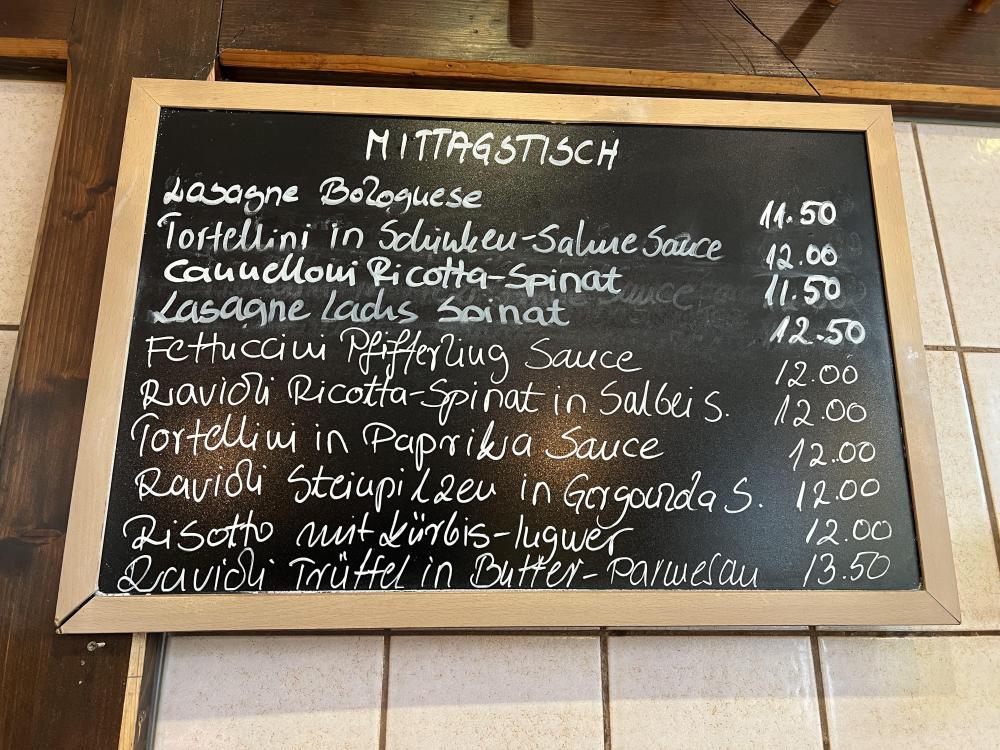 MITTAGSTISCH
Lasagne Bolognese 11.50
Tortellini in Schinken-Sahne Sauce 12.00
Cannelloni Ricotta-Spinat 11.50
Lasagne Lachs Spinat 12.50
Fettuccini Pfifferling Sauce 12.00
Ravioli Ricotta-Spinat in Salbei S. 12.00
Tortellini in Paprika Sauce 12.00
Ravioli Steinpilzen in Gorgonzola S. 12.00
Risotto mit Kürbis-Ingwer 12.00
Ravioli Trüffel in Butter-Parmesan 13.50